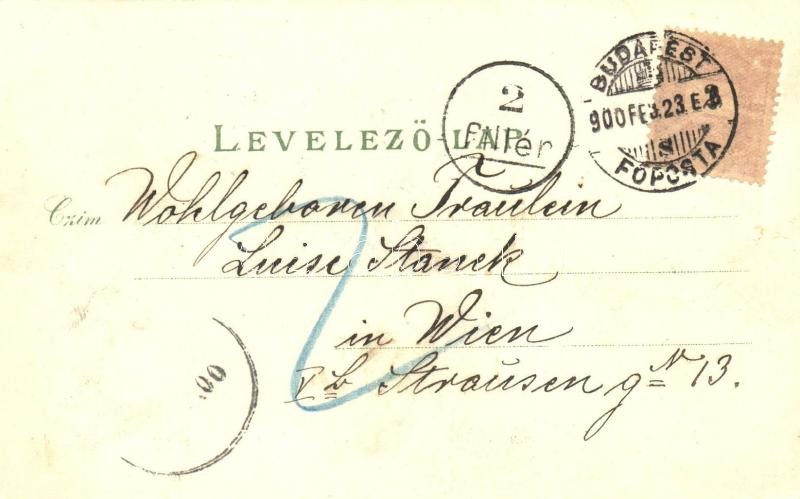 BUDAPEST
900 FEB. 23. E. 8
S
FŐPOSTA
2
fillér
LEVELEZŐ-LAP
Czim Wohlgeboren Fräulein
Luise Stanek
in Wien
V b Straußen g N 13.
00